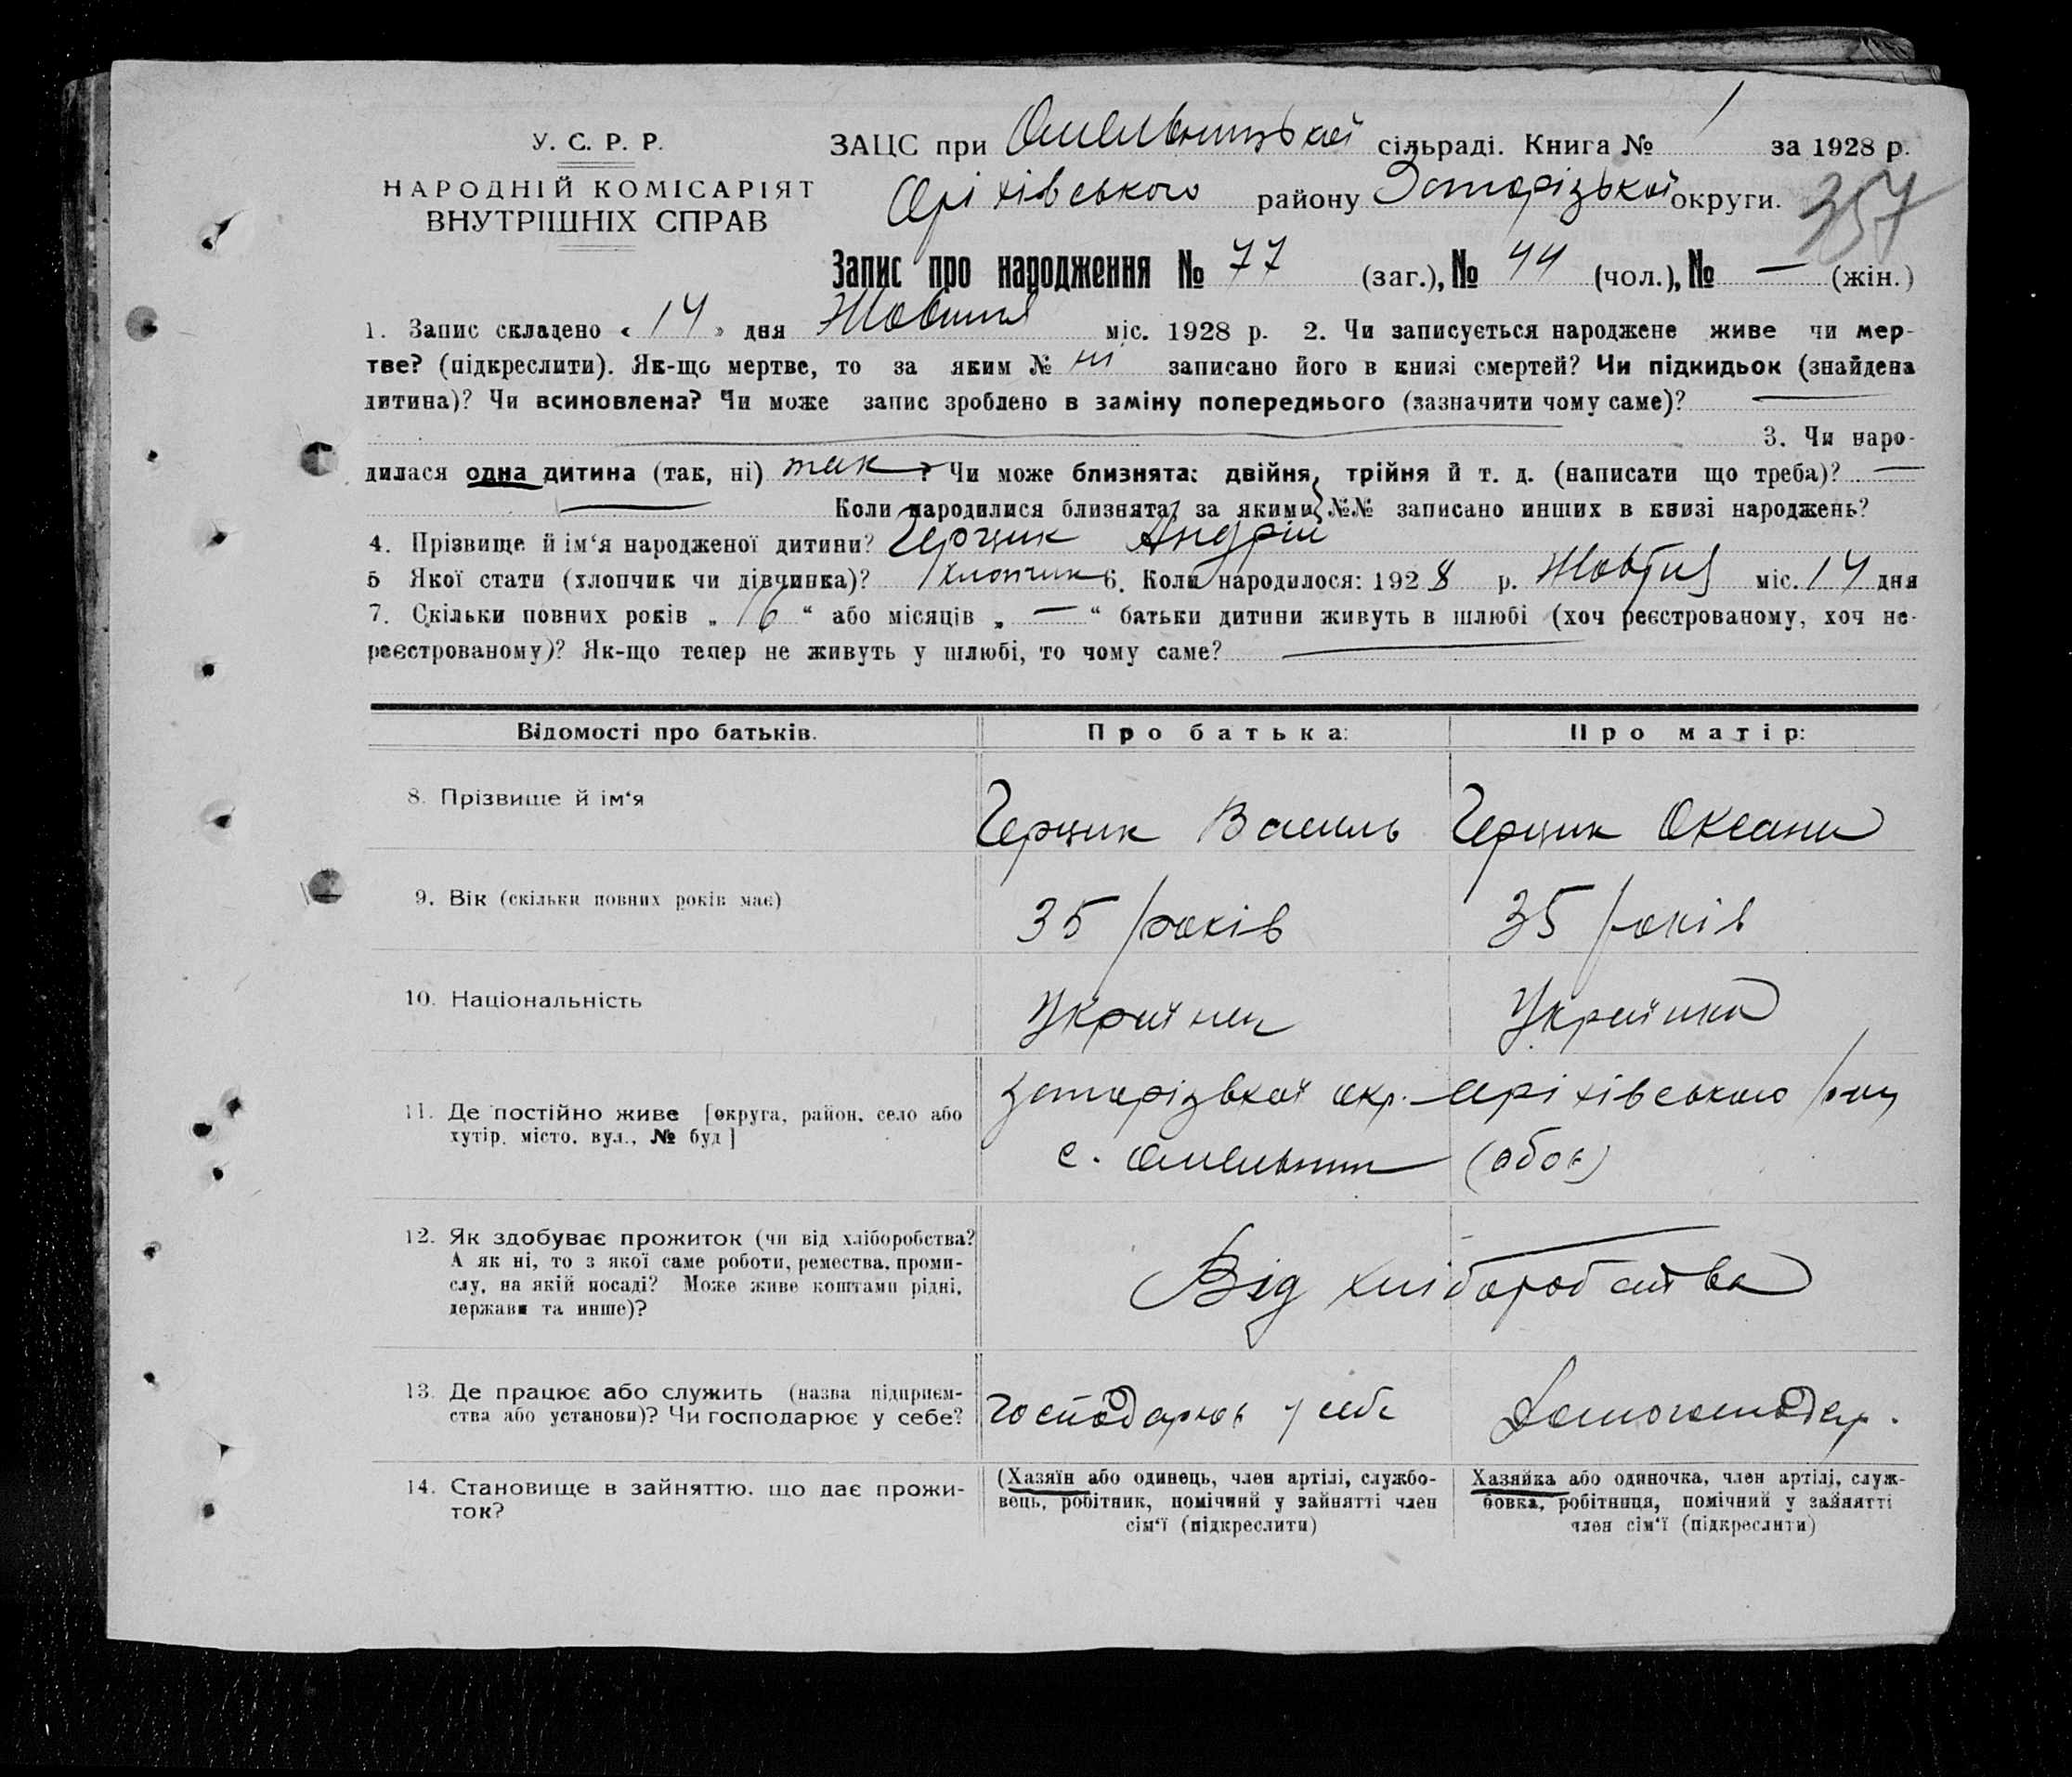 У. С. Р. Р.
НАРОДНІЙ КОМІСАРІЯТ
ВНУТРІШНІХ СПРАВ
ЗАЦС при Омельницької сільраді. Книга № 1 за 1928 р.
Оріхівського району Запорізької округи.
357
Запис про народження № 77 (заг.), № 44 (чол.), № — (жін.)
1. Запис складено « 14 » дня Жовтня міс. 1928 р. 2. Чи записується народжене живе чи мер-
тве? (підкреслити). Як-що мертве, то за яким № записано його в книзі смертей? Чи підкидьок (знайдена
дитина)? Чи всиновлена? Чи може запис зроблено в заміну попереднього (зазначити чому саме)? —
3. Чи наро-
дилася одна дитина (так, ні) так ? Чи може близнята: двійня, трійня й т. д. (написати що треба)? —
— Коли народилися близнята, за якими №№ записано инших в книзі народжень?
4. Прізвище й ім‘я народженої дитини? Герцик Андрій
5 Якої стати (хлопчик чи дівчинка)? хлопчик 6. Коли народилося: 1928 р. Жовтня міс. 14 дня
7. Скільки повних років „ 16 “ або місяців „ — “ батьки дитини живуть в шлюбі (хоч реєстрованому, хоч не-
реєстрованому)? Як-що тепер не живуть у шлюбі, то чому саме? —
Відомості про батьків. Про батька: Про матір:
8. Прізвище й ім‘я Герцик Василь Герцик Оксана
9. Вік (скільки повних років має) 35 років 35 років
10. Національність Українець Українка
11. Де постійно живе [округа, район, село або
хутір, місто, вул., № буд]
Запорізької окр. Оріхівського р-ну
с. Омельник (обоє)
12. Як здобуває прожиток (чи від хліборобства?
А як ні, то з якої саме роботи, ремества, проми-
слу, на якій посаді? Може живе коштами рідні,
держави та инше)?
Від хліборобства
13. Де працює або служить (назва підприєм-
ства або установи)? Чи господарює у себе?
Господарює у себе Домогосподар.
14. Становище в зайняттю, що дає прожи-
ток?
(Хазяїн або одинець, член артілі, службо-
вець, робітник, помічний у зайнятті член
сім‘ї (підкреслити)
Хазяйка або одиночка, член артілі, служ-
бовка, робітниця, помічний у зайнятті
член сім‘ї (підкреслити)